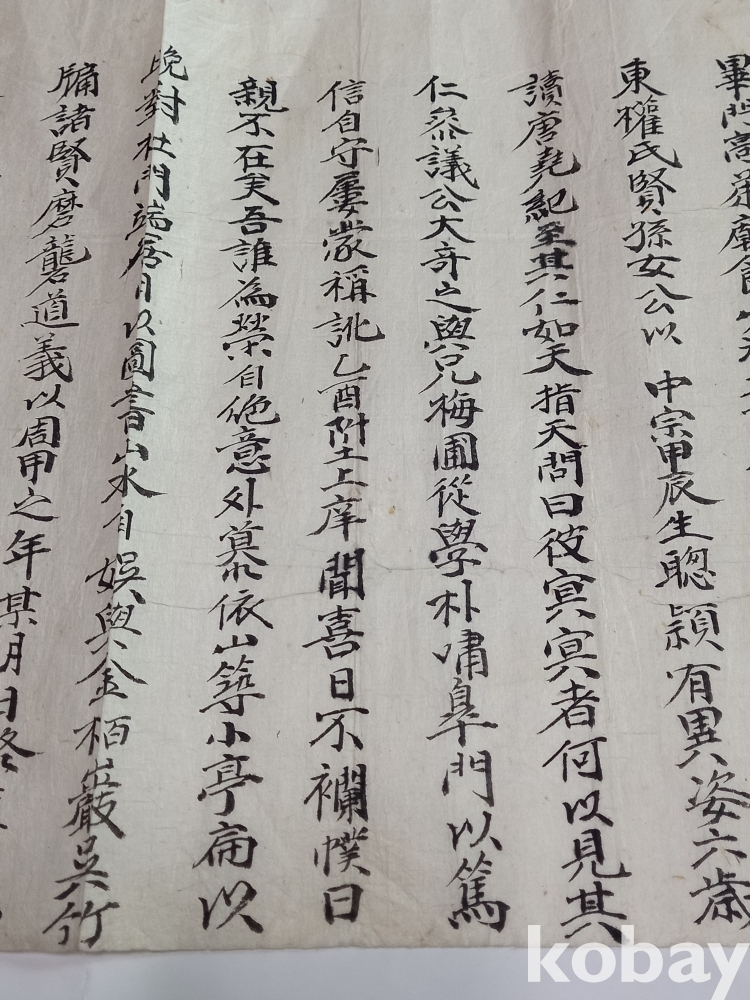 畢門高
東權氏賢孫女公以 中宗甲辰生聰穎有異姿六歲
讀唐堯紀至其仁如天指天問曰彼冥冥者何以見其
仁參議公大奇之與兄梅圃從學朴嘯皋門以篤
信自守屢蒙稱詡乙酉附土上庠聞喜日不襴幞曰
親不在矣吾誰為榮自絶意外慕依山築小亭扁以
晩對杜門端居日以圖書山水自娛與金栢巖吳竹
牖諸賢磨礱道義以周甲之年某月日終
kobay